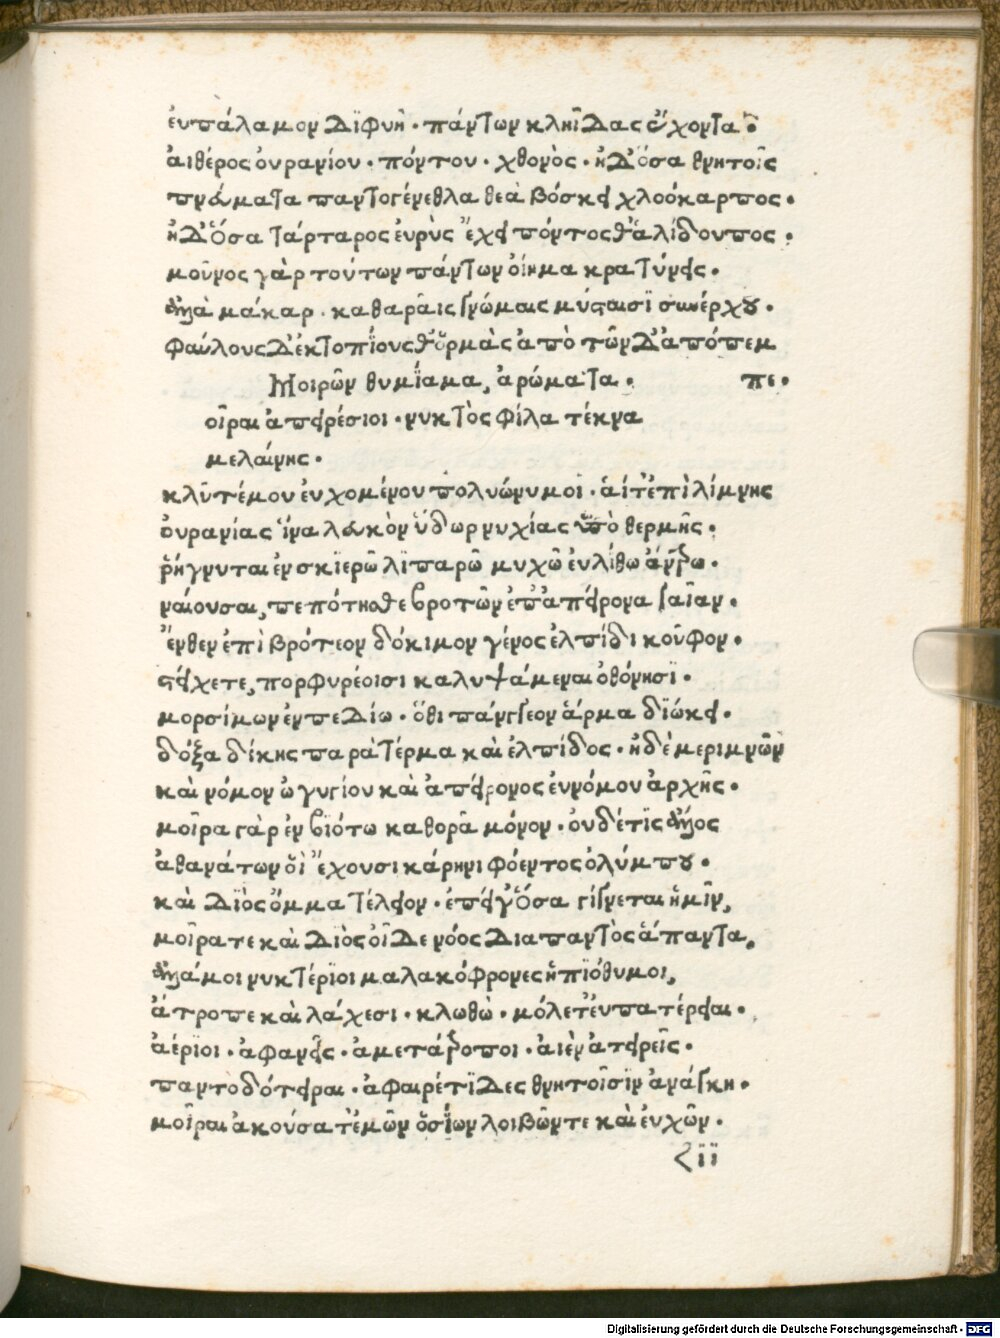 ἐυπάλαμον διφυῆ · πάντων κληῖδας ἔχοντα ·
αἰθέρος οὐρανίου · πόντου · χθονὸς · ἠδ' ὅσα θνητοῖς
πνεύματα παντογένεθλα θεὰ βόσκει χλοόκαρπος ·
ἠδ' ὅσα τάρταρος ἐυρὺς ἔχει πόντος θ' ἁλίδουπος ·
μοῦνος γὰρ τούτων πάντων ὄιηκα κρατύνεις ·
ἀλλὰ μάκαρ · καθαραῖς γνώμαις μύσταισι συνέρχου ·
Φαύλους δ' ἐκτοπίους θ' ὁρμὰς ἀπὸ τῶνδ' ἀπόπεμ
πε ·
Μοιρῶν θυμίαμα, ἀρώματα ·
οῖραι ἀπειρέσιοι · νυκτὸς φίλα τέκνα
μελαίνης ·
κλῦτέ μου ἐυχομένου πολυώνυμοι · ἁίτ' ἐπὶ λίμνης
ὀυρανίας ἵνα λευκὸν ὕδωρ νυχίας ὑπὸ θερμῆς ·
ῥήγνυται ἐν σκιερῶ λιπαρῶ μυχῶ ἐυλίθω ἄντρω ·
ναίουσαι, πεπότησθε βροτῶν ἐπ' ἀπείρονα γαῖαν ·
ἔνθεν ἐπὶ βρότεον δόκιμον γένος ἐλπίδι κοῦφον ·
στείχετε, πορφυρέοισι καλυψάμεναι ὀθόνησι ·
μορσίμω ἐν πεδίω · ὅθι πάγγεον ἅρμα διώκει ·
δόξα δίκης παρὰ τέρμα καὶ ἐλπίδος · ἠδὲ μεριμνῶν
καὶ νόμου ὠγυγίου καὶ ἀπείρονος ἐυνόμου ἀρχῆς ·
μοῖρα γὰρ ἐν βιότω καθορᾶ μόνον · ὀυδέ τις ἄλλος
ἀθανάτων ὃι ἔχουσι κάρη νιφόεντος ὀλύμπου ·
καὶ Διὸς ὄμμα τέλειον · ἐπεί γ' ὅσα γίγνεται ἡμῖν,
μοῖρα τε καὶ Διὸς οἶδε νόος διαπαντὸς ἅπαντα,
ἀλλά μοι νυκτέριοι μαλακόφρονες ἠπιόθυμοι,
ἄτροπε καὶ λάχεσι · κλωθὼ · μόλετ' ἐυπατέρειαι ·
ἀέριοι · ἀφανεῖς · ἀμετάτροποι · ἀιὲν ἀτειρεῖς ·
παντοδότειραι · ἀφαιρέτιδες θνητοῖσιν ἀνάγκη ·
μοῖραι ἀκούσατ' ἐμῶν ὁσίων λοιβῶν τε καὶ ἐυχῶν ·
ζ ii
Digitalisierung gefördert durch die Deutsche Forschungsgemeinschaft - DFG